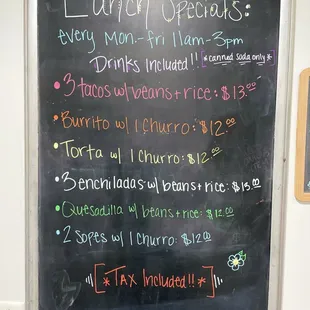 Lunch Specials:
every Mon.-fri 11am-3pm
Drinks Included!! *canned soda only*
• 3 tacos w/ beans + rice: $13.00
• Burrito w/ 1 churro: $12.00
• Torta w/ 1 churro: $12.00
• 3 enchiladas w/ beans + rice: $13.00
• Quesadilla w/ beans + rice: $12.00
• 2 Sopes w/ 1 churro: $12.00
*TAX Included!!*